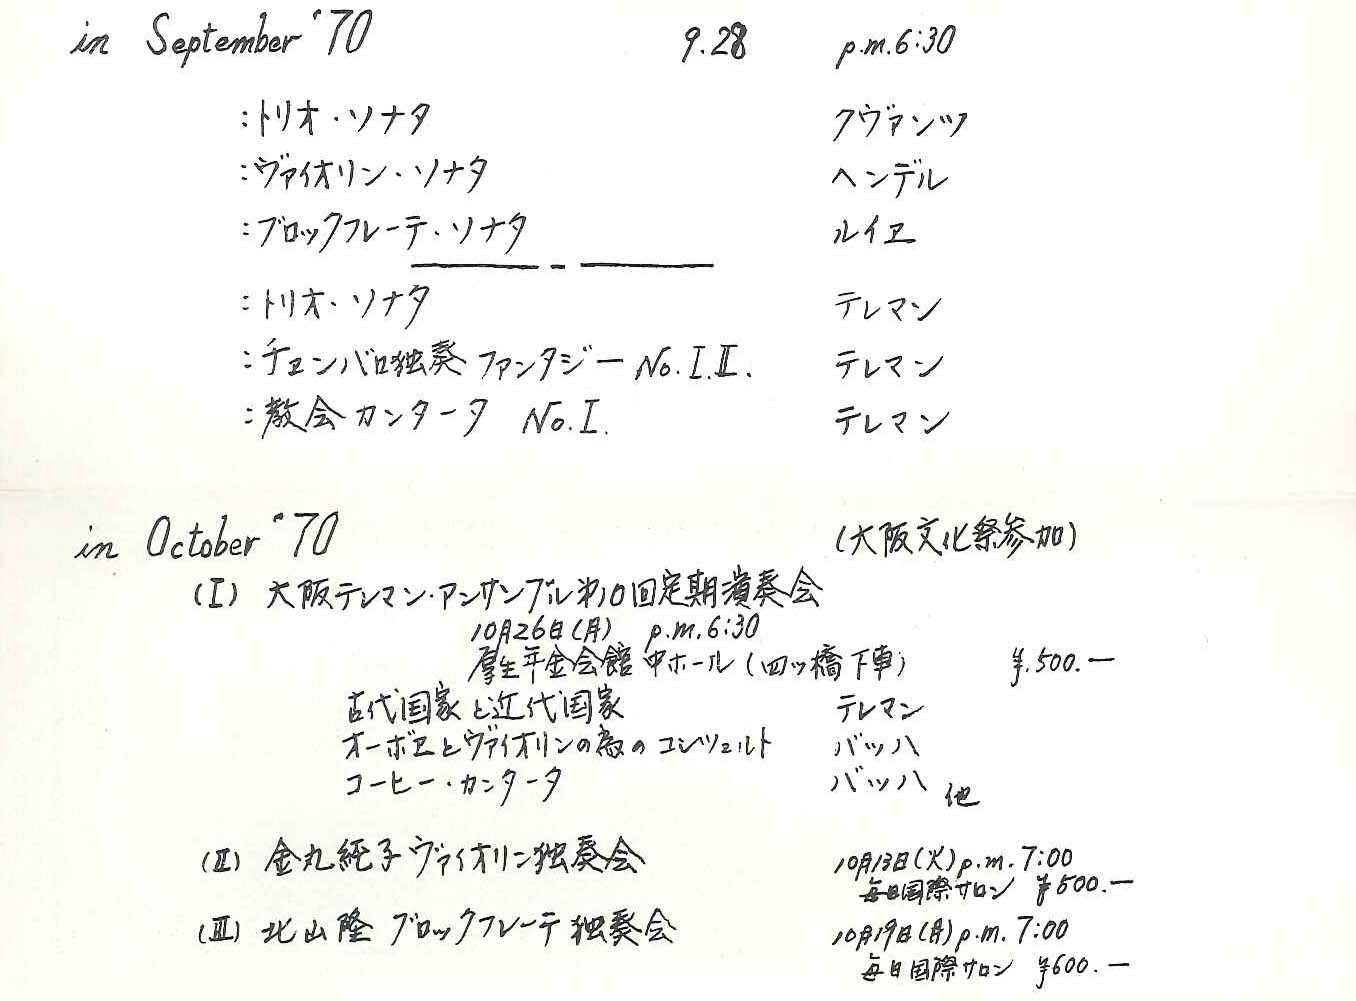 in September '70 9.28 p.m.6:30
:トリオ・ソナタ クヴァンツ
:ヴァイオリン・ソナタ ヘンデル
:ブロックフレーテ・ソナタ ルイエ
:トリオ・ソナタ テレマン
:チェンバロ独奏 ファンタジー No.I.II. テレマン
:教会カンタータ No.I. テレマン
in October '70 (大阪文化祭参加)
(I) 大阪テレマン・アンサンブル第10回定期演奏会
10月26日(月) p.m.6:30
厚生年金会館 中ホール(四ツ橋下車) ¥.500.―
古代国家と近代国家 テレマン
オーボエとヴァイオリンの為のコンツェルト バッハ
コーヒー・カンタータ バッハ 他
(II) 金丸純子ヴァイオリン独奏会 10月13日(火)p.m.7:00
毎日国際サロン ¥500.―
(III) 北山隆 ブロックフレーテ独奏会 10月19日(月)p.m.7:00
毎日国際サロン ¥600.―